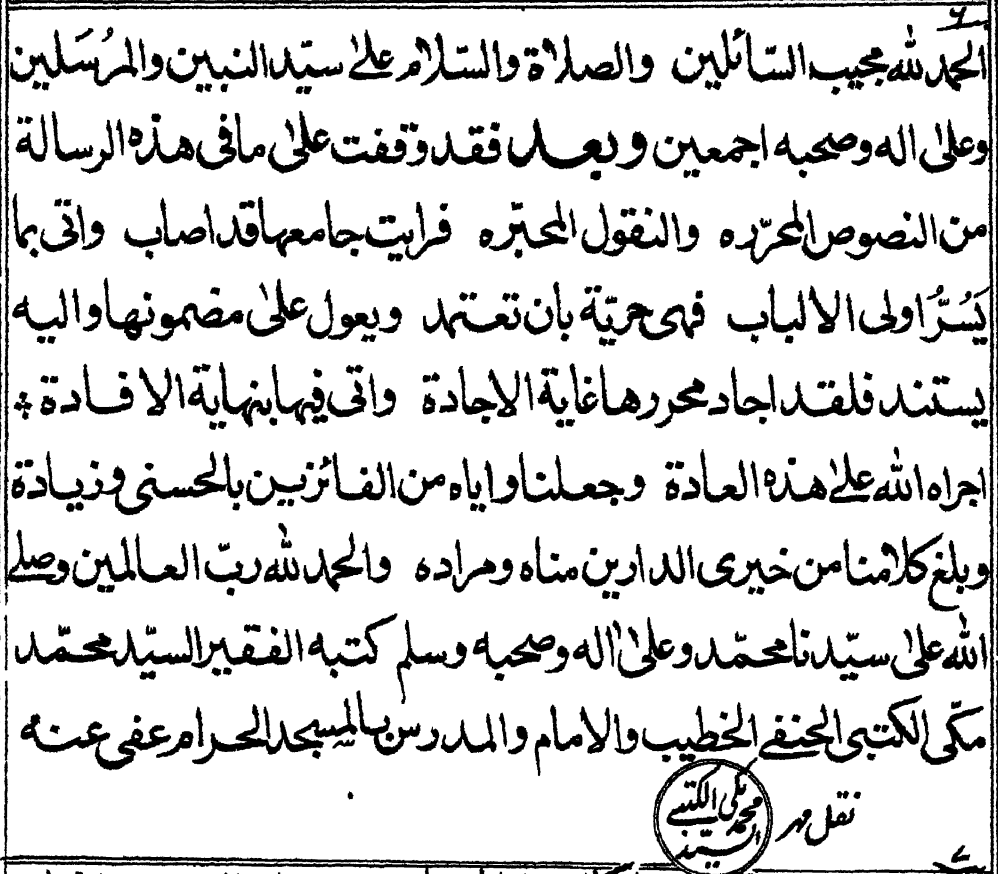 ٦
الحمد لله مجيب السّائلين والصلاة والسّلام على سيّد النبيين والمرُسَلين
وعلى اله وصحبه اجمعين وبعد فقد وقفت على ما فى هذه الرسالة
من النصوص المحرّره والنقول المحبّره فرايت جامعها قد اصاب واتى بما
يَسُرُّ اولى الالباب فهى حريّة بان تعتمد ويعول على مضمونها واليه
يستند فلقد اجاد محررها غاية الاجادة واتى فيها بنهاية الافادة
اجراه الله على هذه العادة وجعلنا واياه من الفائزين بالحسنى وزيادة
وبلغ كلا منا من خيرى الدارين مناه ومراده والحمد لله ربّ العالمين وصلى
الله على سيّدنا محمّد وعلى اله وصحبه وسلم كتبه الفقير السيّد محمّد
مكّى الكتبى الحنفى الخطيب والامام والمدرس بالمسجد الحرام عفى عنه
نقل مهر
السيّد محمد مكى الكتبى
٧